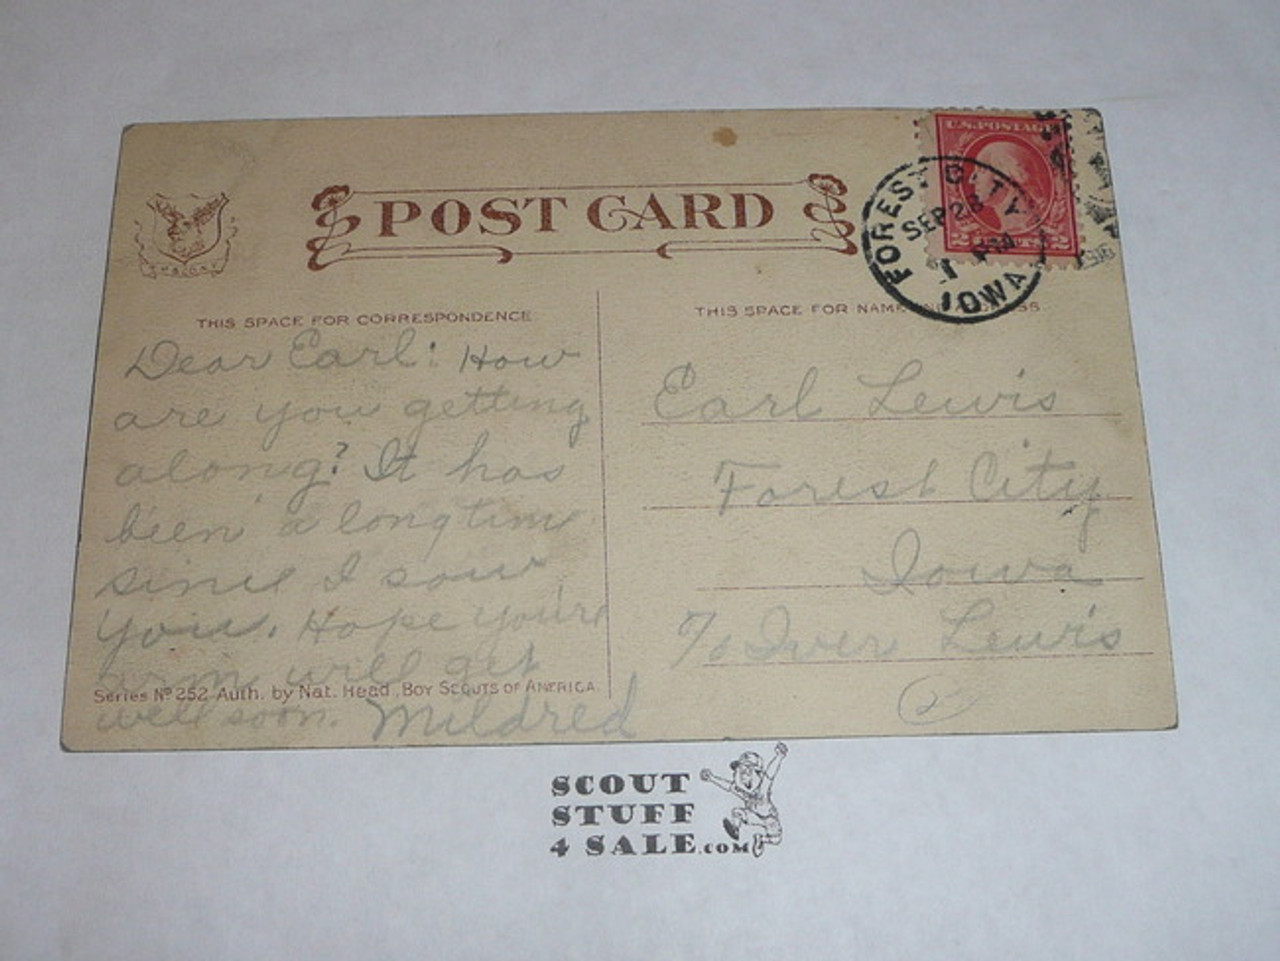 POST CARD
U.S. POSTAGE
2 CENTS 2
FOREST CITY
SEP 28
1
IOWA
THIS SPACE FOR CORRESPONDENCE
THIS SPACE FOR NAME AND ADDRESS
Dear Earl: How
are you getting
along? It has
been a long time
since I saw
you. Hope you're
arm will get
well soon. Mildred
Series No 252 Auth. by Nat. Head. Boy Scouts of America.
Earl Lewis
Forest City
Iowa
℅ Iver Lewis
2
SCOUT
STUFF
4 SALE.COM